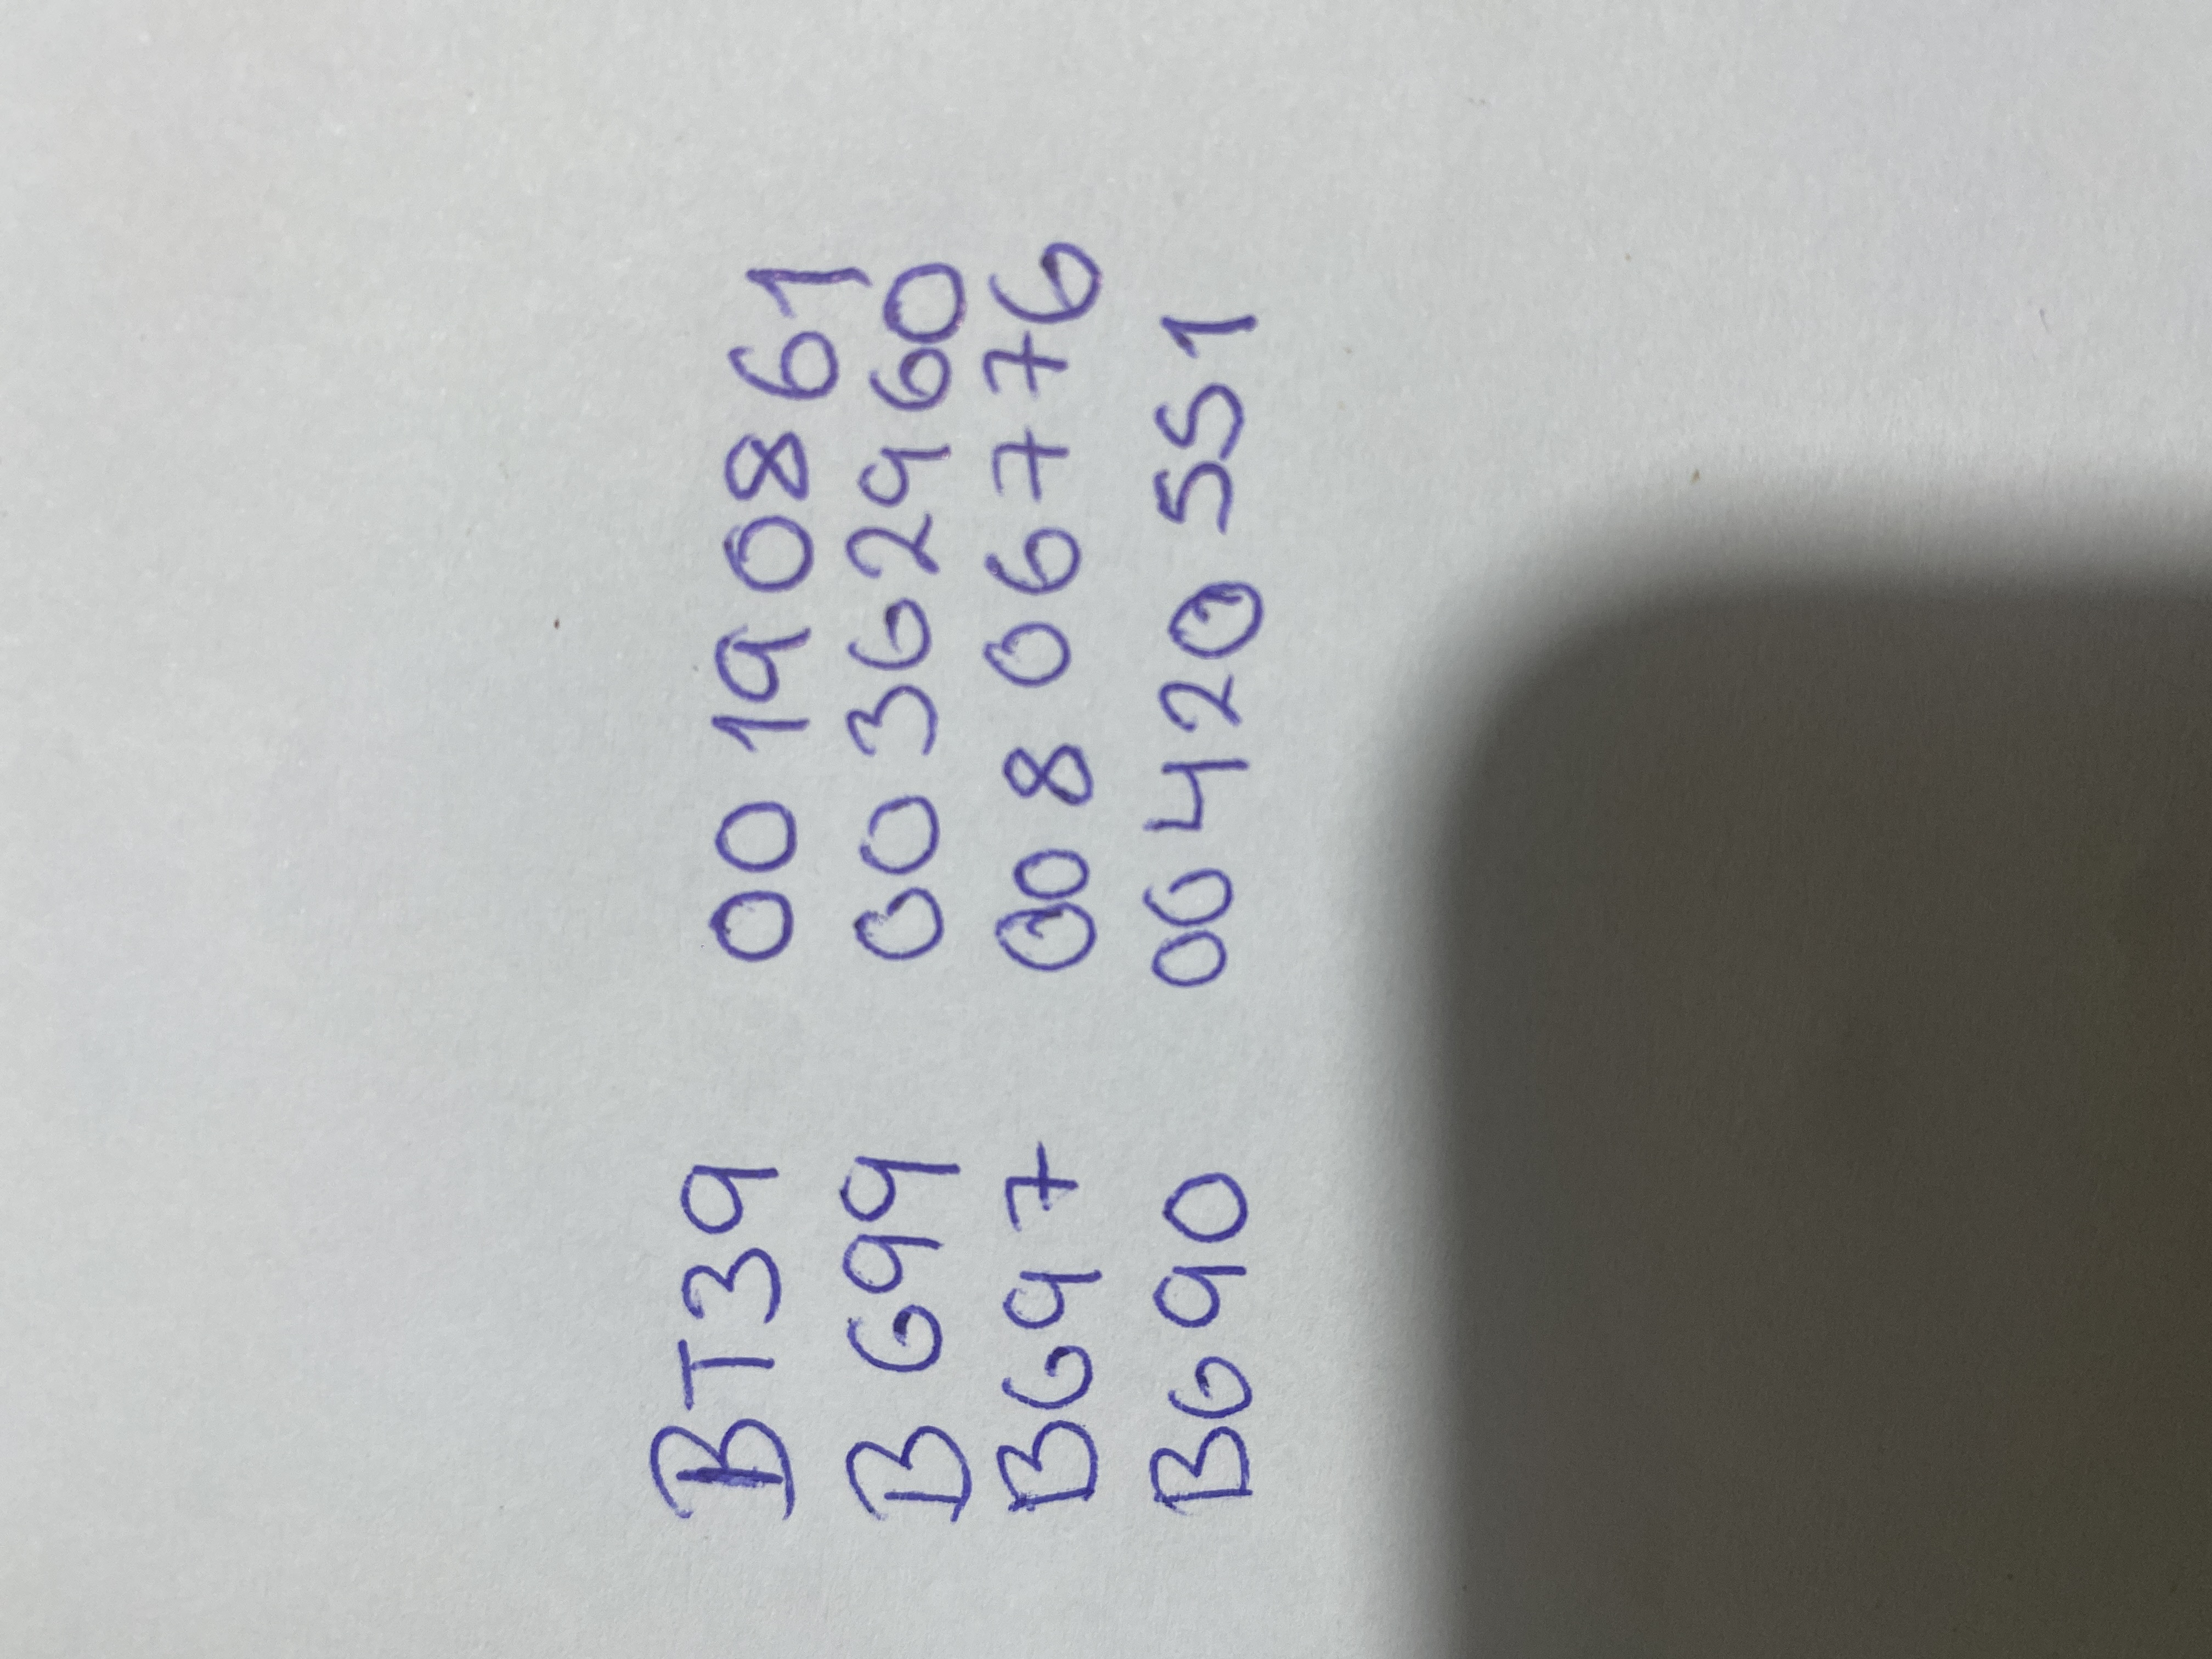 BT39 00190861
BG99 00362960
BG97 00806776
BG90 00420551